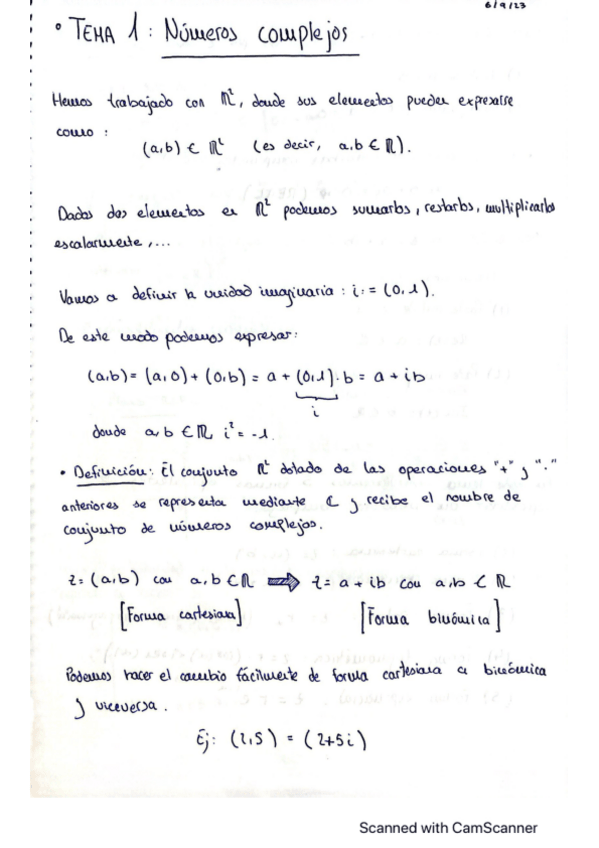 6/9/23
• TEMA 1: Números complejos
Hemos trabajado con ℝ², donde sus elementos pueden expresarse
como:
(a,b) ∈ ℝ² (es decir, a,b ∈ ℝ).
Dados dos elementos en ℝ² podemos sumarlos, restarlos, multiplicarlos
escalarmente,...
Vamos a definir la unidad imaginaria: i:= (0,1).
De este modo podemos expresar:
(a,b) = (a,0) + (0,b) = a + (0,1)·b = a + ib
i
donde a,b ∈ ℝ, i² = -1.
• Definición: El conjunto ℝ² dotado de las operaciones "+" y "·"
anteriores se representa mediante ℂ y recibe el nombre de
conjunto de números complejos.
z = (a,b) con a,b ∈ ℝ ⟹ z = a + ib con a,b ∈ ℝ
[Forma cartesiana] [Forma binómica]
Podemos hacer el cambio fácilmente de forma cartesiana a binómica
y viceversa.
Ej: (2,5) = (2+5i)
Scanned with CamScanner